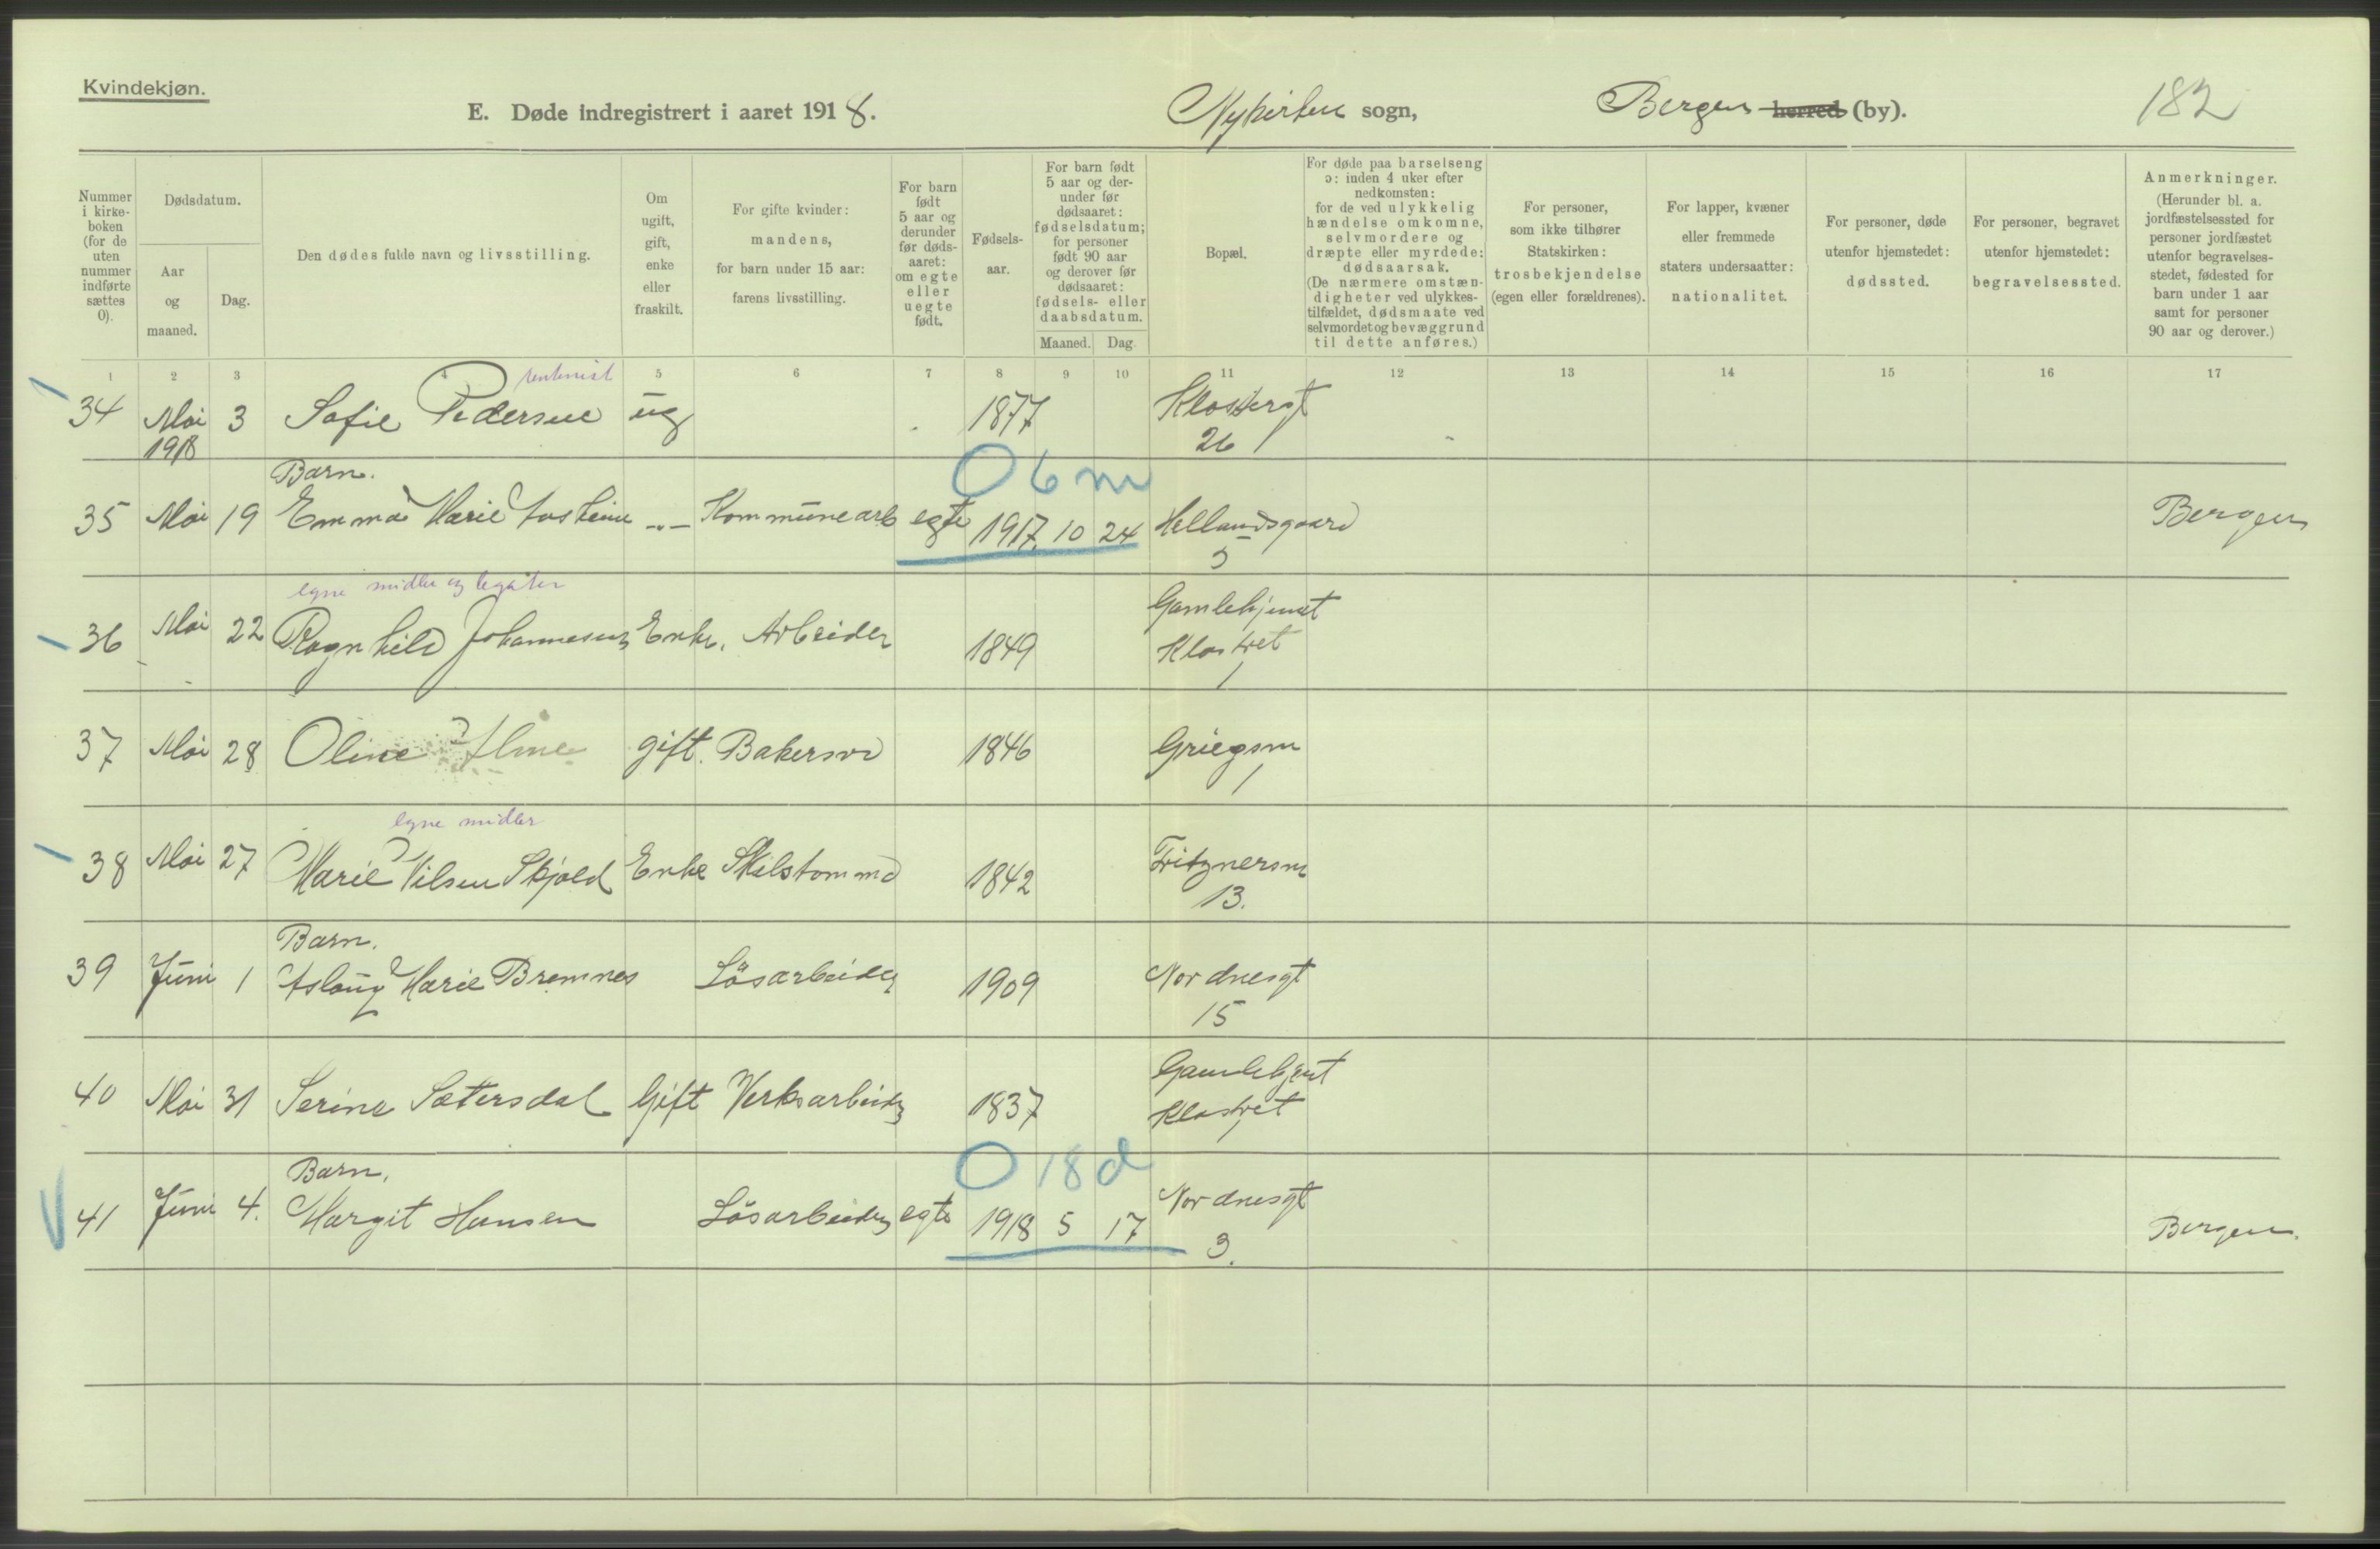 Kvindekjøn.
E. Døde indregistrert i aaret 1918. Nykirken sogn, Bergen herred (by). 182
Nummer i kirkeboken (for de uten nummer indførte sættes 0).
Dødsdatum.
Aar og maaned.
Dag.
Den dødes fulde navn og livsstilling.
Om ugift, gift, enke eller fraskilt.
For gifte kvinder: mandens, for barn under 15 aar: farens livsstilling.
For barn født 5 aar og derunder før dødsaaret: om egte eller uegte født.
Fødselsaar.
For barn født 5 aar og derunder før dødsaaret: fødselsdatum; for personer født 90 aar og derover før dødsaaret: fødsels- eller daabsdatum.
Maaned. Dag.
Bopæl.
For døde paa barselseng ɔ: inden 4 uker efter nedkomsten: for de ved ulykkelig hændelse omkomne, selvmordere og dræpte eller myrdede: dødsaarsak. (De nærmere omstændigheter ved ulykkestilfældet, dødsmaate ved selvmordet og bevæggrund til dette anføres.)
For personer, som ikke tilhører Statskirken: trosbekjendelse (egen eller forældrenes).
For lapper, kvæner eller fremmede staters undersaatter: nationalitet.
For personer, døde utenfor hjemstedet: dødssted.
For personer, begravet utenfor hjemstedet: begravelsessted.
Anmerkninger. (Herunder bl. a. jordfæstelsessted for personer jordfæstet utenfor begravelsesstedet, fødested for barn under 1 aar samt for personer 90 aar og derover.)
1 2 3 4 5 6 7 8 9 10 11 12 13 14 15 16 17
rentenist
34 Mai 1918 3 Sofie Pedersen ug 1877 Klostergt 26
Barn. 0 6 m
35 Mai 19 Emma Marie -"- Kommunearb egte 1917 10 24 Hellandsgaard 5 Bergen
egne midler og legater
36 Mai 22 Ragnhild Johannesen Enke. Arbeider 1849 Gamlehjemet Klostret 1
37 Mai 28 Oline gift. Bakersv 1846 Griegsm 1
egne midler
38 Mai 27 Marie Nilsen Skjold Enke Skilstommd 1842 Fritznersm 13.
Barn.
39 Juni 1 Aslaug Marie Bremnes Løsarbeider 1909 Nordnesgt 15
40 Mai 31 Serine Sætersdal Gift Verksarbeider 1837 Gamlehjemt Klostret 1
Barn. 0 18 d
41 Juni 4. Margit Hansen Løsarbeider egte 1918 5 17 Nordnesgt 3. Bergen.